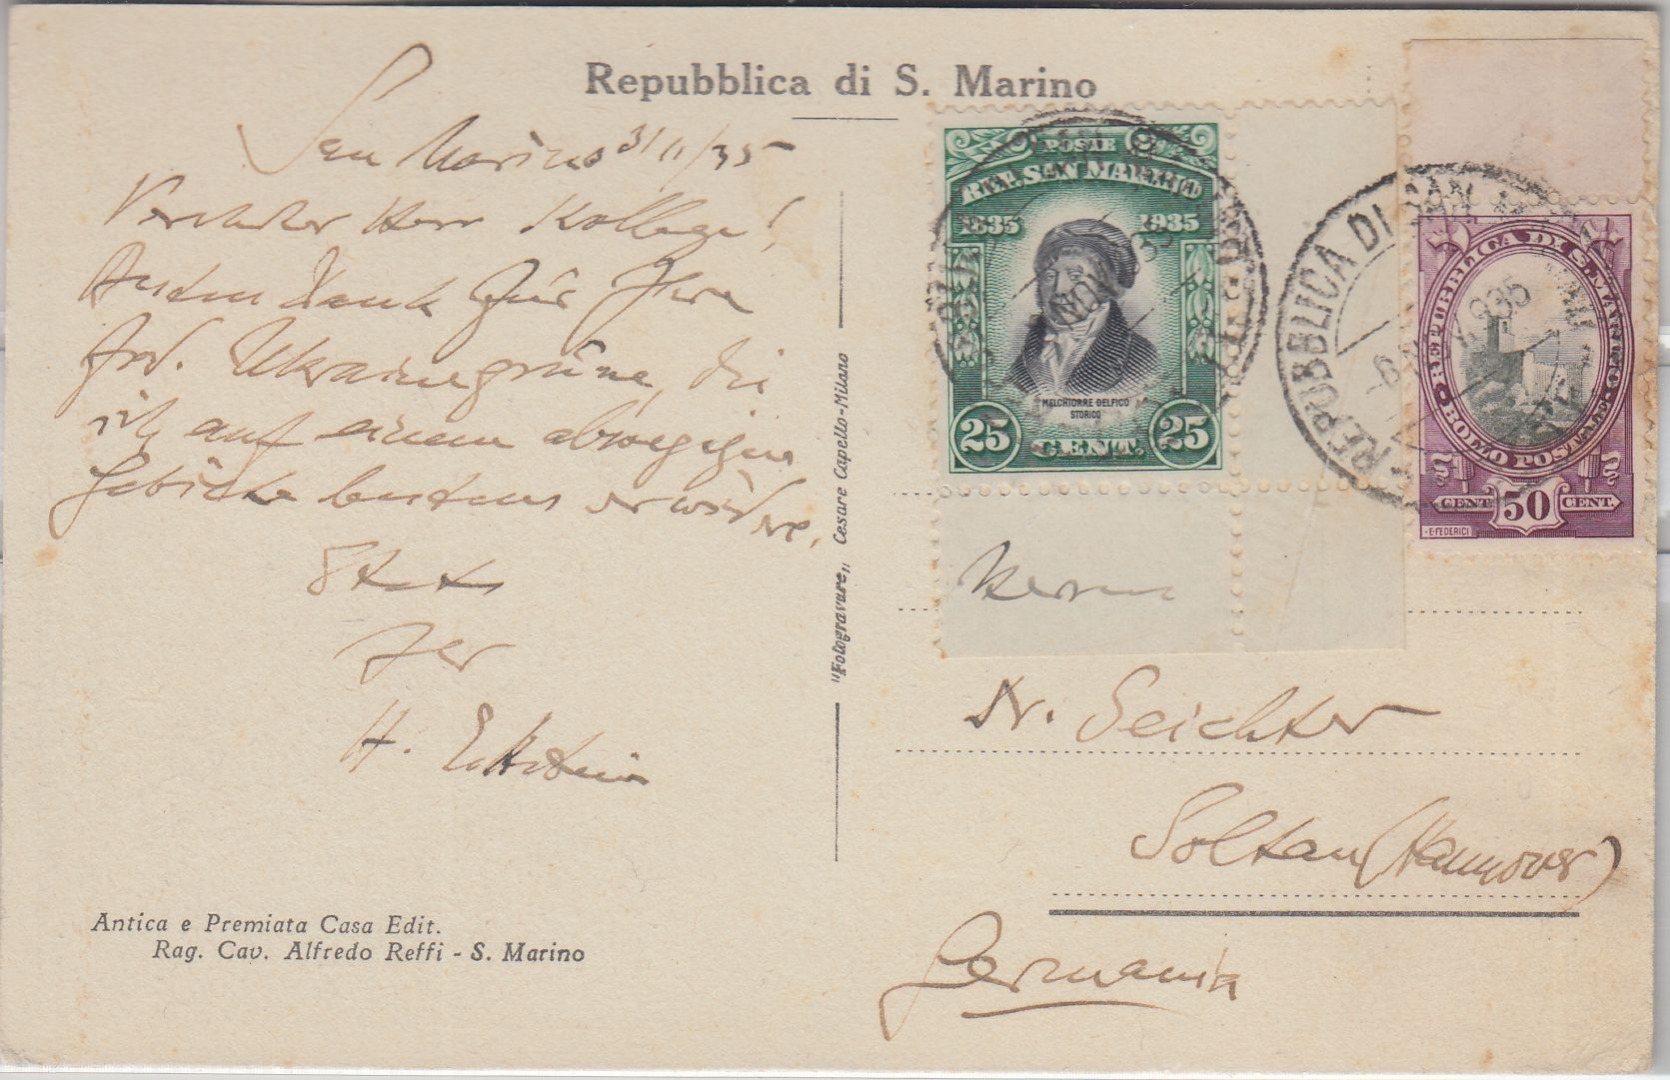 Repubblica di S. Marino
San Marino 3/11/35
Verehrter Herr Kollege!
Dank für Ihre
frd. Ukrainegrüße, die
ich auf einem abwegigen
Gebiete bestens erwidere.
Stets
Ihr
H. Eckstein
Antica e Premiata Casa Edit.
Rag. Cav. Alfredo Reffi - S. Marino
"Fotogravure„ Cesare Capello-Milano
POSTE
REP. SAN MARINO
1835 1935
MELCHIORRE DELFICO
STORICO
25 CENT. 25
REPUBBLICA DI S. MARINO
BOLLO POSTALE
CENT. 50 CENT.
E. FEDERICI
REPUBBLICA DI SAN
NOV
935
Herrn
Dr. Seichter
Soltau (Hannover)
Germania